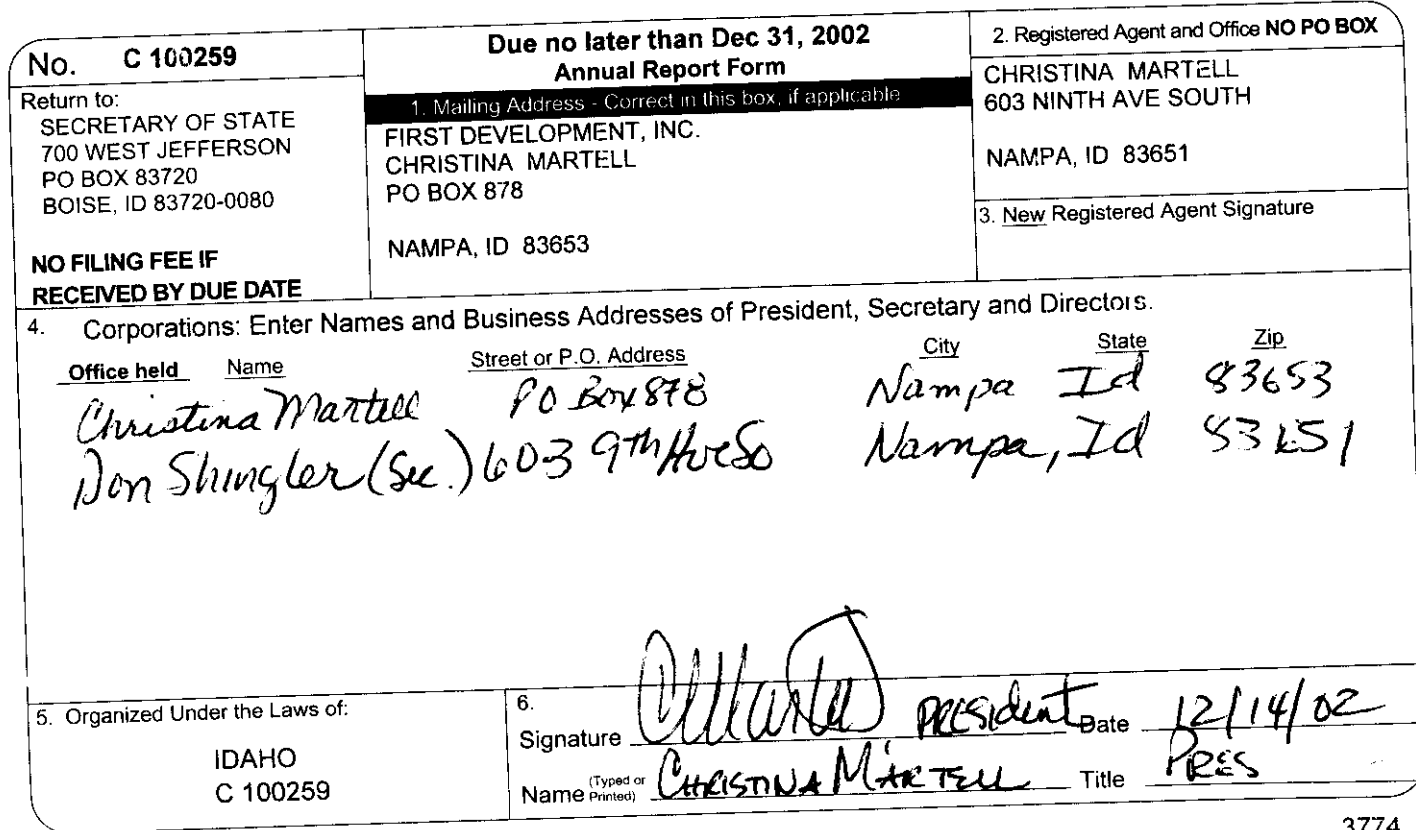 No. C 100259
Return to:
SECRETARY OF STATE
700 WEST JEFFERSON
PO BOX 83720
BOISE, ID 83720-0080
NO FILING FEE IF
RECEIVED BY DUE DATE
Due no later than Dec 31, 2002
Annual Report Form
1. Mailing Address - Correct in this box, if applicable
FIRST DEVELOPMENT, INC.
CHRISTINA MARTELL
PO BOX 878
NAMPA, ID 83653
2. Registered Agent and Office NO PO BOX
CHRISTINA MARTELL
603 NINTH AVE SOUTH
NAMPA, ID 83651
3. New Registered Agent Signature
4. Corporations: Enter Names and Business Addresses of President, Secretary and Directors.
Office held Name Street or P.O. Address City State Zip
Christina Martell PO Box 878 Nampa Id 83653
Don Shingler (Sec.) 603 9th Ave So Nampa, Id 83651
5. Organized Under the Laws of:
IDAHO
C 100259
6.
Signature CMartell PRESident Date 12/14/02
Name (Typed or Printed) CHRISTINA MARTELL Title PRES
3774